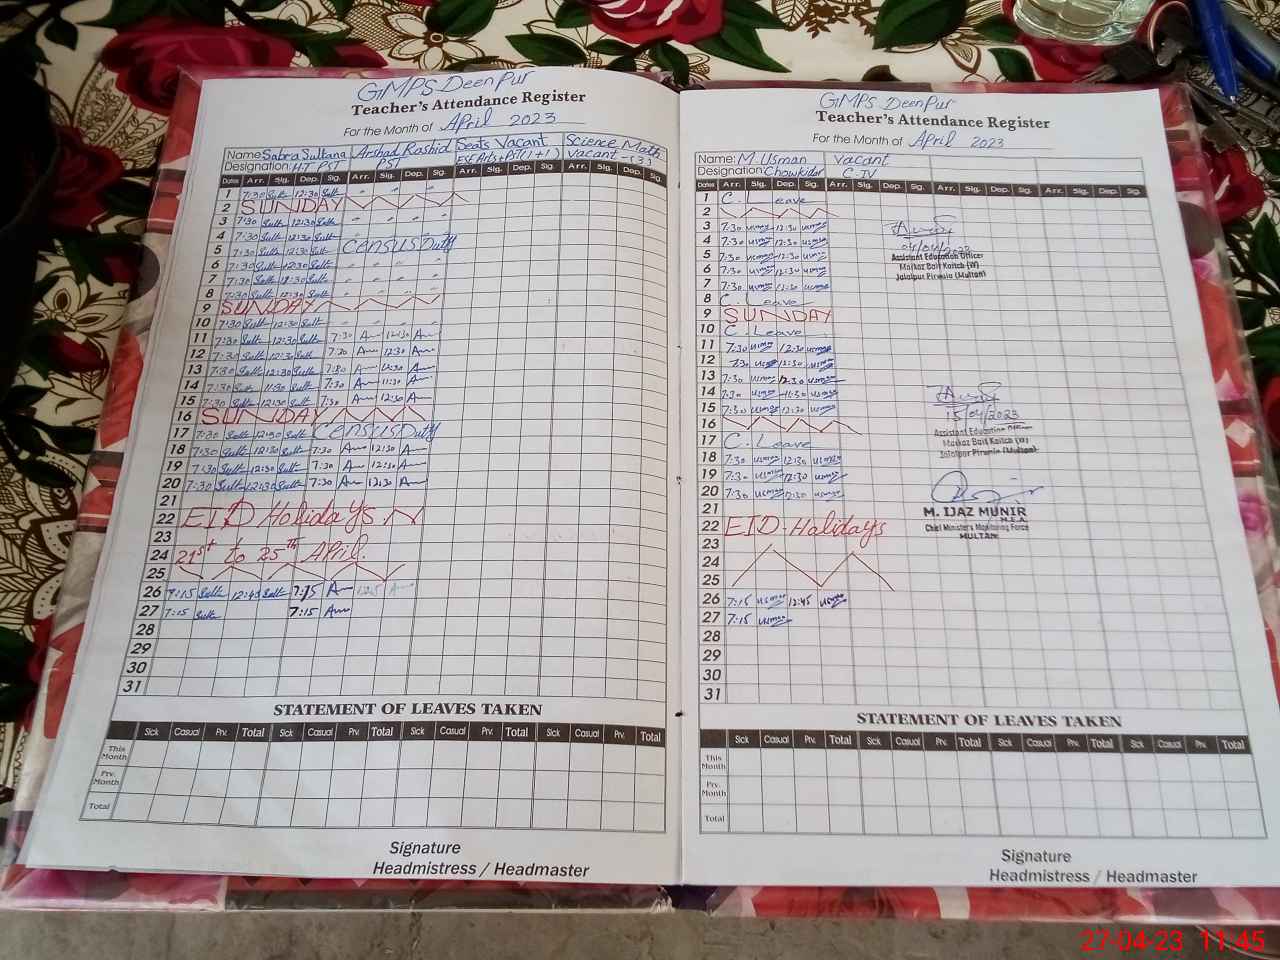 GMPS DeenPur
Teacher's Attendance Register
For the Month of April 2023
Name Sabra Sultana Arshad Rashid Seats Vacant Science Math
Designation: H.T PST PST Vacant
Dates Arr. Sig. Dep. Sig. Arr. Sig. Dep. Sig. Arr. Sig. Dep. Sig. Arr. Sig. Dep. Sig.
1 7:30 Sult 12:30 Sult
2 SUNDAY
3 7:30 Sult 12:30 Sult
4 7:30 Sult 12:30 Sult
5 7:30 Sult 12:30 Sult Census Duty
6 7:30 Sult 12:30 Sult
7 7:30 Sult Sult
8 7:30 Sult 12:30 Sult
9 SUNDAY
10 7:30 Sult 12:30 Sult
11 7:30 Sult 12:30 Sult 7:30 12:30
12 7:30 Sult 12:30 Sult 7:30 12:30
13 7:30 Sult 12:30 Sult 7:30 12:30
14 7:30 Sult 11:30 Sult 7:30 11:30
15 7:30 Sult 12:30 Sult 7:30 12:30
16 SUNDAY
17 7:30 Sult 12:30 Sult Census Duty
18 7:30 Sult 12:30 Sult 7:30 12:30
19 7:30 Sult 12:30 Sult 7:30 12:30
20 7:30 Sult 12:30 Sult 7:30 12:30
21
22 EID Holidays
23
24 21st to 25th April.
25
26 7:15 Sult 12:45 Sult 7:15
27 7:15 Sult 7:15
28
29
30
31
STATEMENT OF LEAVES TAKEN
Sick Casual Prv. Total Sick Casual Prv. Total Sick Casual Prv. Total Sick Casual Prv. Total
This Month
Prv. Month
Total
Signature
Headmistress / Headmaster
GMPS DeenPur
Teacher's Attendance Register
For the Month of April 2023
Name: M. Usman Vacant
Designation: Chowkidar C.IV
Dates Arr. Sig. Dep. Sig. Arr. Sig. Dep. Sig. Arr. Sig. Dep. Sig. Arr. Sig. Dep. Sig.
1 C. Leave
2
3 7:30 usman 12:30 usman
4 7:30 usman 12:30 usman
04/04/2023
5 7:30 usman 12:30 usman
Assistant Education Officer
Markaz Bait Kaitch (W)
Jalalpur Pirwala (Multan)
6 7:30 usman 12:30 usman
7 7:30 usman usman
8 C. Leave
9 SUNDAY
10 C. Leave
11 7:30 usman 12:30 usman
12 7:30 usman 12:30 usman
13 7:30 usman 12:30 usman
14 7:30 usman 11:30 usman
15 7:30 usman 12:30 usman
15/04/2023
16
Assistant Education Officer
Markaz Bait Kaitch (W)
Jalalpur Pirwala (Multan)
17 C. Leave
18 7:30 usman 12:30 usman
19 7:30 usman 12:30 usman
20 7:30 usman 12:30 usman
21
M. IJAZ MUNIR
M.E.A.
Chief Minister's Monitoring Force
MULTAN
22 EID Holidays
23
24
25
26 7:15 usman 12:45 usman
27 7:15 usman
28
29
30
31
STATEMENT OF LEAVES TAKEN
Sick Casual Prv. Total Sick Casual Prv. Total Sick Casual Prv. Total Sick Casual Prv. Total
This Month
Prv. Month
Total
Signature
Headmistress / Headmaster
27-04-23 11:45